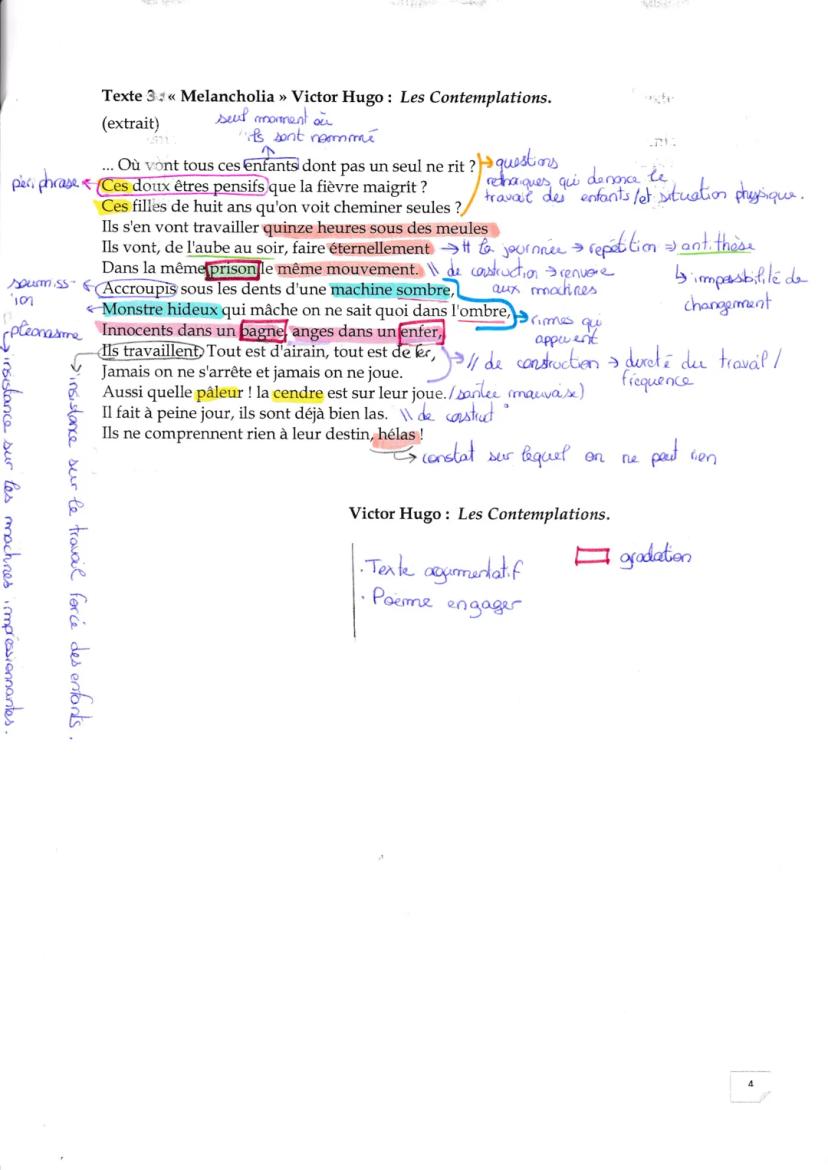 Texte 3 : « Melancholia » Victor Hugo : Les Contemplations.
(extrait)
seul moment où
ils sont nommé
... Où vont tous ces enfants dont pas un seul ne rit ?
Ces doux êtres pensifs que la fièvre maigrit ?
Ces filles de huit ans qu'on voit cheminer seules ?
Ils s'en vont travailler quinze heures sous des meules
Ils vont, de l'aube au soir, faire éternellement
Dans la même prison le même mouvement.
Accroupis sous les dents d'une machine sombre,
Monstre hideux qui mâche on ne sait quoi dans l'ombre,
Innocents dans un bagne, anges dans un enfer,
Ils travaillent. Tout est d'airain, tout est de fer,
Jamais on ne s'arrête et jamais on ne joue.
Aussi quelle pâleur ! la cendre est sur leur joue.
Il fait à peine jour, ils sont déjà bien las.
Ils ne comprennent rien à leur destin, hélas !
questions
rethoriques qui denonce le
travail des enfants / et situation physique.
périphrase
tt la journnée → repetition → antithèse
// de costruction → renvoie
aux machines
↳ impossibilité de
changement
soumiss-
ion
rimes qui
appuient
pléonasme
// de construction → dureté du travail /
fréquence
/ santée mauvaise)
\\ de construct°
→ constat sur lequel on ne peut rien
insistance sur les machines impressionnantes.
insistance sur le travail forcé des enfants.
Victor Hugo : Les Contemplations.
. Texte argumentatif
. Poème engager
gradation
4